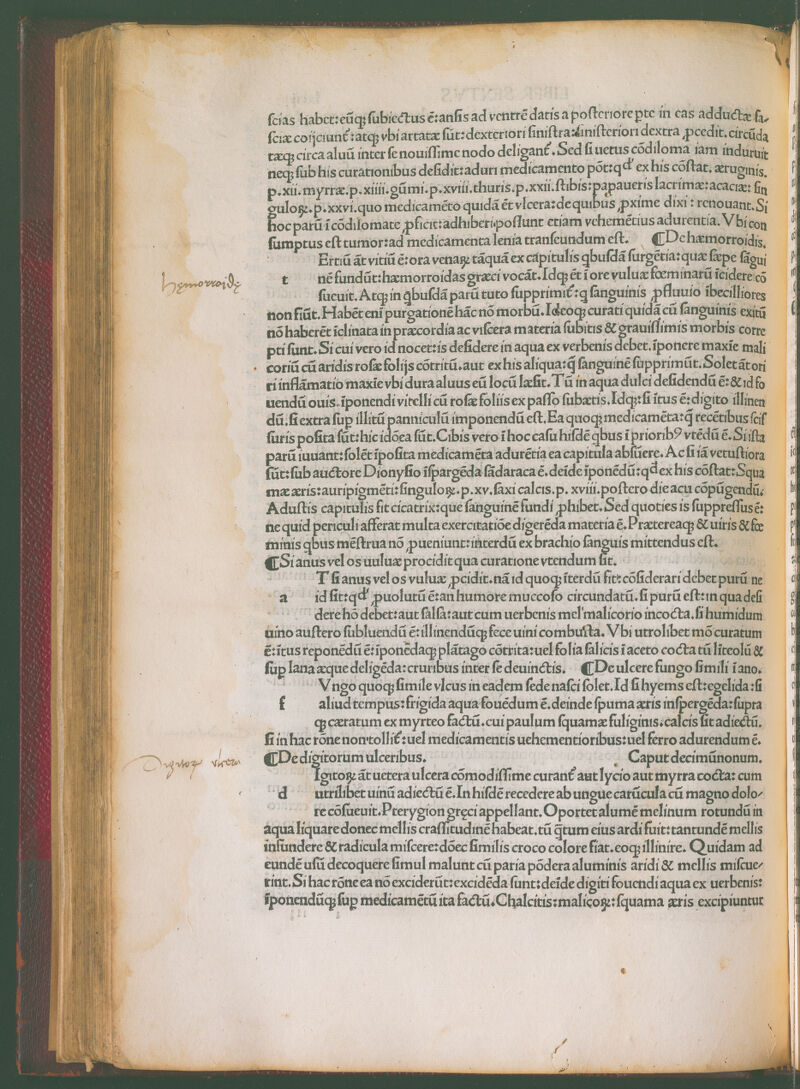 ſcias habet:eūq; ſubiectus ē:anſis ad ventrē datis a poſteriore pte in eas adductæ fa,
ſciæ coijciunt᷑:atq; vbi artatæ ſūt:dexteriori ſiniſtra:ſiniſteriori dextra ꝓcedit.circūda
tæq; circa aluū inter ſe nouiſſime nodo deligant᷑. Sed ſi uetus cōdiloma iam induruit
neq; ſub his curationibus deſidit:aduri medicamento pōt:qđ ex his cōſtat. æruginis.
p.xii.myrræ.p.xiiii.gūmi.p.xviii.thuris.p.xxii.ſtibis:papaueris lacrimæ:acaciæ: ſin
guloꝝ.p.xxvi.quo medicamēto quidā ēt vlcera:de quibus ꝓxime dixi : renouant.Si
hoc parū ī cōdilomate ꝓficit:adhiberi poſſunt etiam vehemētius adurentia. Vbi con
ſumptus eſt tumor:ad medicamenta lenia tranſeundum eſt. ¶De hæmorroidis.
Ertiū āt vitiū ē:ora venaꝝ tāquā ex capitulis q̄buſdā ſurgētia:quæ ſæpe ſāgui
t nē fundūt:hæmorroidas græci vocāt.Idq; ēt ī ore vuluæ fœminarū īcidere cō
ſueuit. Atq; in q̄buſdā parū tuto ſupprimit᷑:q ſanguinis ꝓfluuio ībecilliores
non fiūt.Habēt enī purgationē hāc nō morbū.Ideoq; curati quidā cū ſanguinis exitū
nō haberēt īclinata in præcordia ac viſcera materia ſubitis & grauiſſimis morbis corre
pti ſunt.Si cui vero id nocet:is deſidere in aqua ex verbenis debet.īponere maxīe mali
coriū cū aridis roſæ folijs cōtritū.aut ex his aliqua:q̄ ſanguinē ſupprimūt.Solet āt ori
ri inflāmatio maxīe vbi dura aluus eū locū læſit.Tū in aqua dulci deſidendū ē:& id fo
uendū ouis.īponendi vitelli cū roſæ foliis ex paſſo ſubætis.Idq;:ſi ītus ē:digito illinen
dū.ſi extra ſup illitū panniculū imponendū eſt.Ea quoq; medicamēta:q̄ recētibus ſciſ
ſuris poſita ſūt:hic idōea ſūt.Cibis vero ī hoc caſu hiſdē q̄bus ī priorib⁹ vtēdū ē.Si iſta
parū iuuant:ſolēt īpoſita medicamēta adurētia ea capitula abſūere.Ac ſi iā vetuſtiora
ſūt:ſub auctore Dionyſio īſpargēda ſādaraca ē.deīde īponēdū:qđ ex his cōſtat:Squa
mæ æris:auripigmēti:ſinguloꝝ.p.xv.ſaxi calcis.p. xviii.poſtero die acu cōpūgendū:
Aduſtis capitulis fit cicatrix:que ſanguinē fundi ꝓhibet. Sed quoties is ſuppreſſus ē:
ne quid periculi afferat multa exercitatiōe digerēda materia ē.Prætereaq; & uiris & fœ
minis qbus mēſtrua nō ꝓueniunt:interdū ex brachio ſanguis mittendus eſt.
¶Si anus vel os uuluæ procidit qua curatione vtendum ſit.
T ſi anus vel os vuluæ ꝓcidit.nā id quoq; īterdū fit:cōſiderari debet purū ne
a id ſit:qđ ꝓuolutū ē:an humore muccoſo circundatū.ſi purū eſt:in qua deſi
dere hō debet:aut ſalſa:aut cum uerbenis mel'malicorio incocta.ſi humidum
uino auſtero ſubluendū ē:illinendūq; fece uini combuſta. Vbi utrolibet mō curatum
ē:ītus reponēdū ē:īponēdaq; plātago cōtrita:uel folia ſalicis ī aceto cocta tū līteolū &
ſup lana æque deligēda:cruribus inter ſe deuinctis. ¶De ulcere fungo ſimili ī ano.
Vngo quoq; ſimile vlcus in eadem ſede naſci ſolet.Id ſi hyems eſt:egelida:ſi
f aliud tempus:frigida aqua fouēdum ē.deinde ſpuma æris inſpergēda:ſupra
q; cæratum ex myrteo factū.cui paulum ſquamæ fuliginis.calcis ſit adiectū.
ſi in hac rōne non tollit᷑:uel medicamentis uehementioribus:uel ferro adurendum ē.
¶De digitorum ulceribus. Caput decimūnonum.
Igitoꝝ āt uetera ulcera cōmodiſſime curant᷑ aut lycio aut myrra cocta: cum
d utrilibet uinū adiectū ē.In hiſdē recedere ab ungue carūcula cū magno dolo
re cōſueuit.Pterygion gręci appellant.Oportet alumē melinum rotundū in
aqua liquare donec mellis craſſitudinē habeat.tū q̄tum eius ardi fuit:tantundē mellis
infundere & radicula miſcere:dōec ſimilis croco colore fiat.eoq; illinire. Quidam ad
eundē uſū decoquere ſimul malunt cū paria pōdera aluminis aridi & mellis miſcue
rint.Si hac rōne ea nō exciderūt:excidēda ſunt:deīde digiti fouendi aqua ex uerbenis:
īponendūq; ſup medicamētū ita factū.Chalcitis:malicoꝝ:ſquama æris excipiuntur
hęmorroidę
Digitoꝝ vlcera